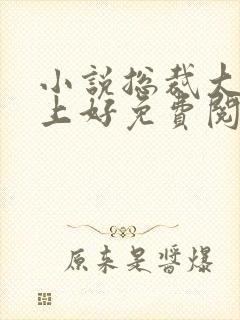 小説总裁大
上好免費閱
原来是醬爆